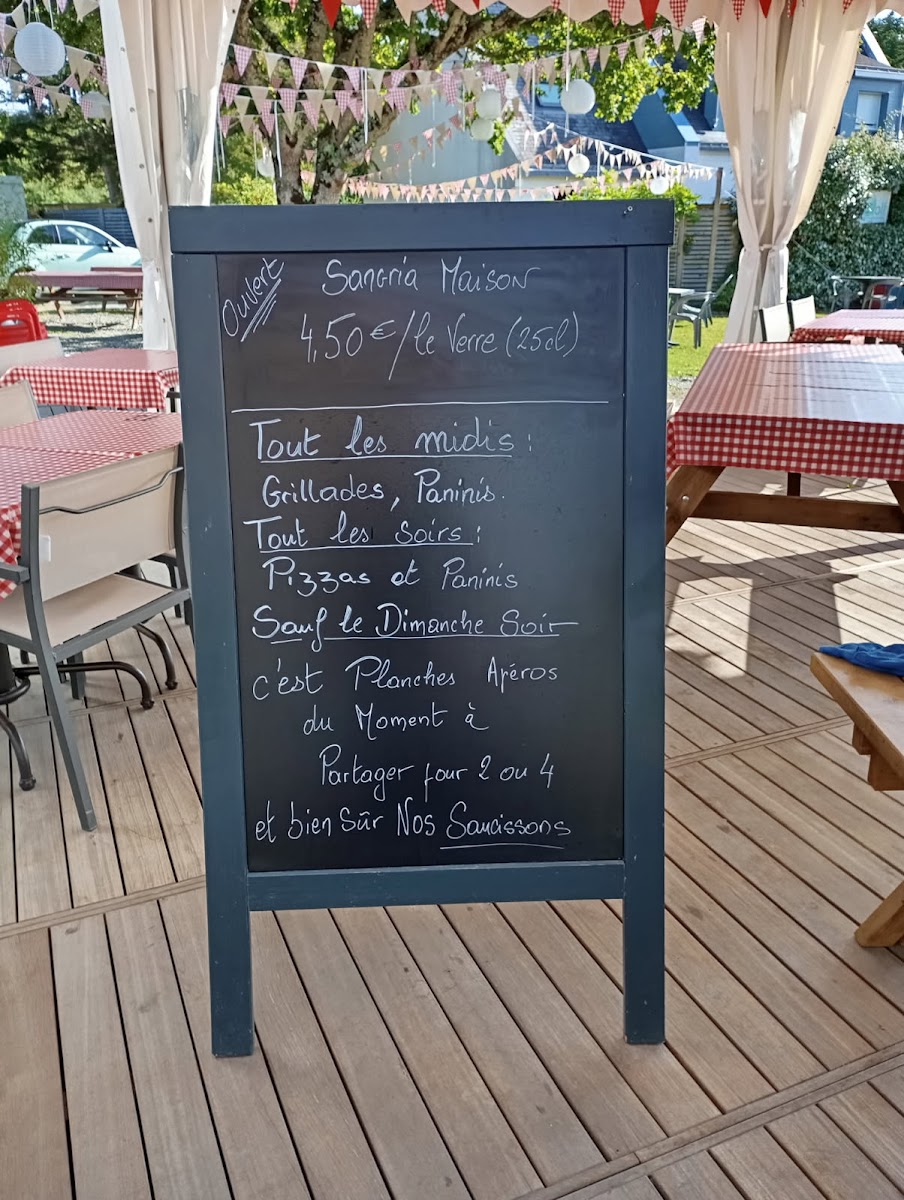 Ouvert
Sangria Maison
4,50€/le Verre (25cl)
Tout les midis :
Grillades, Paninis.
Tout les Soirs :
Pizzas et Paninis
Sauf le Dimanche Soir
c'est Planches Apéros
du Moment à
Partager pour 2 ou 4
et bien Sûr Nos Saucissons